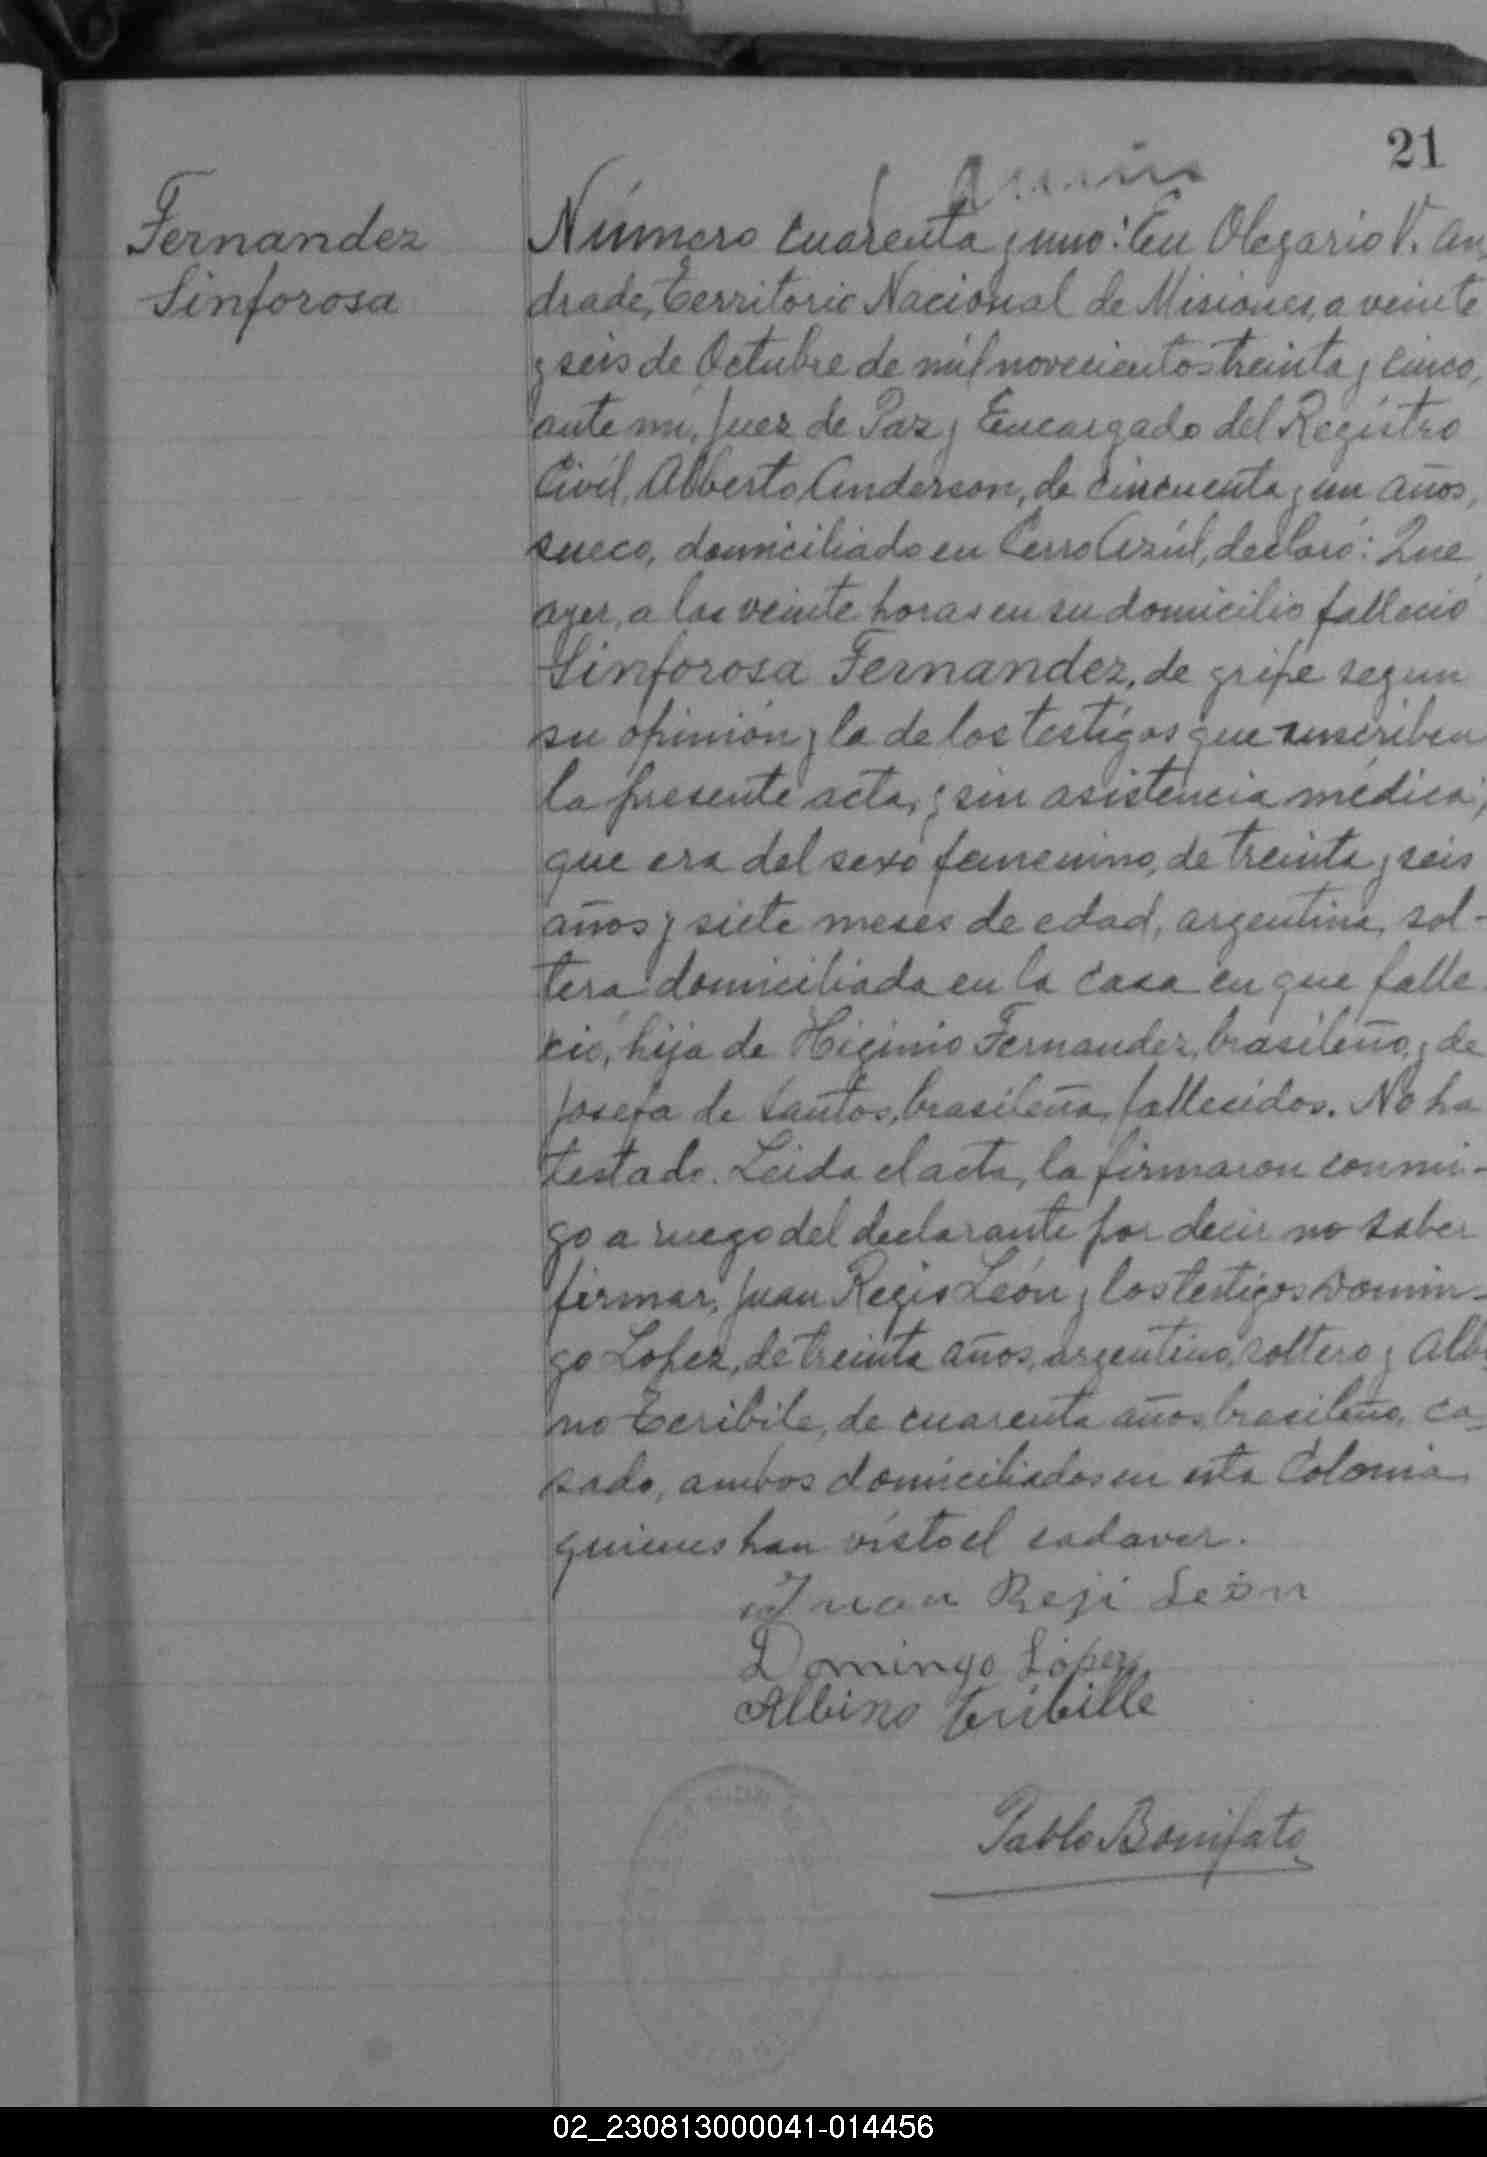 21
Fernandez
Sinforosa
Número cuarenta y uno: En Olegario V. An
drade, Territorio Nacional de Misiones, a veinte
y seis de Octubre de mil novecientos treinta y cinco,
ante mi, Juez de Paz y Encargado del Registro
Civíl, Alberto Anderson, de cincuenta y un años,
sueco, domiciliado en Cerro Azúl, declaró: Que
ayer, a las veinte horas en su domicilio falleció
Sinforosa Fernandez, de gripe segun
su opinión y la de los testigos que suscriben
la presente acta, y sin asistencia médica;
que era del sexo femenino, de treinta y seis
años y siete meses de edad, argentina, sol-
tera domiciliada en la casa en que falle
ció, hija de Higinio Fernandez, brasileño, y de
Josefa de Santos, brasileña, fallecidos. No ha
testado. Leida el acta, la firmaron conmi-
go a ruego del declarante por decir no saber
firmar, Juan Regis León y los testigos Domin-
go Lopez, de treinta años, argentino, soltero y Albi
no Teribile, de cuarenta años, brasileño, ca-
sado, ambos domiciliados en esta Colonia
quienes han visto el cadaver.
Juan Reji León
Domingo López
Albino Teribille
Pablo Bonifato
02_230813000041-014456